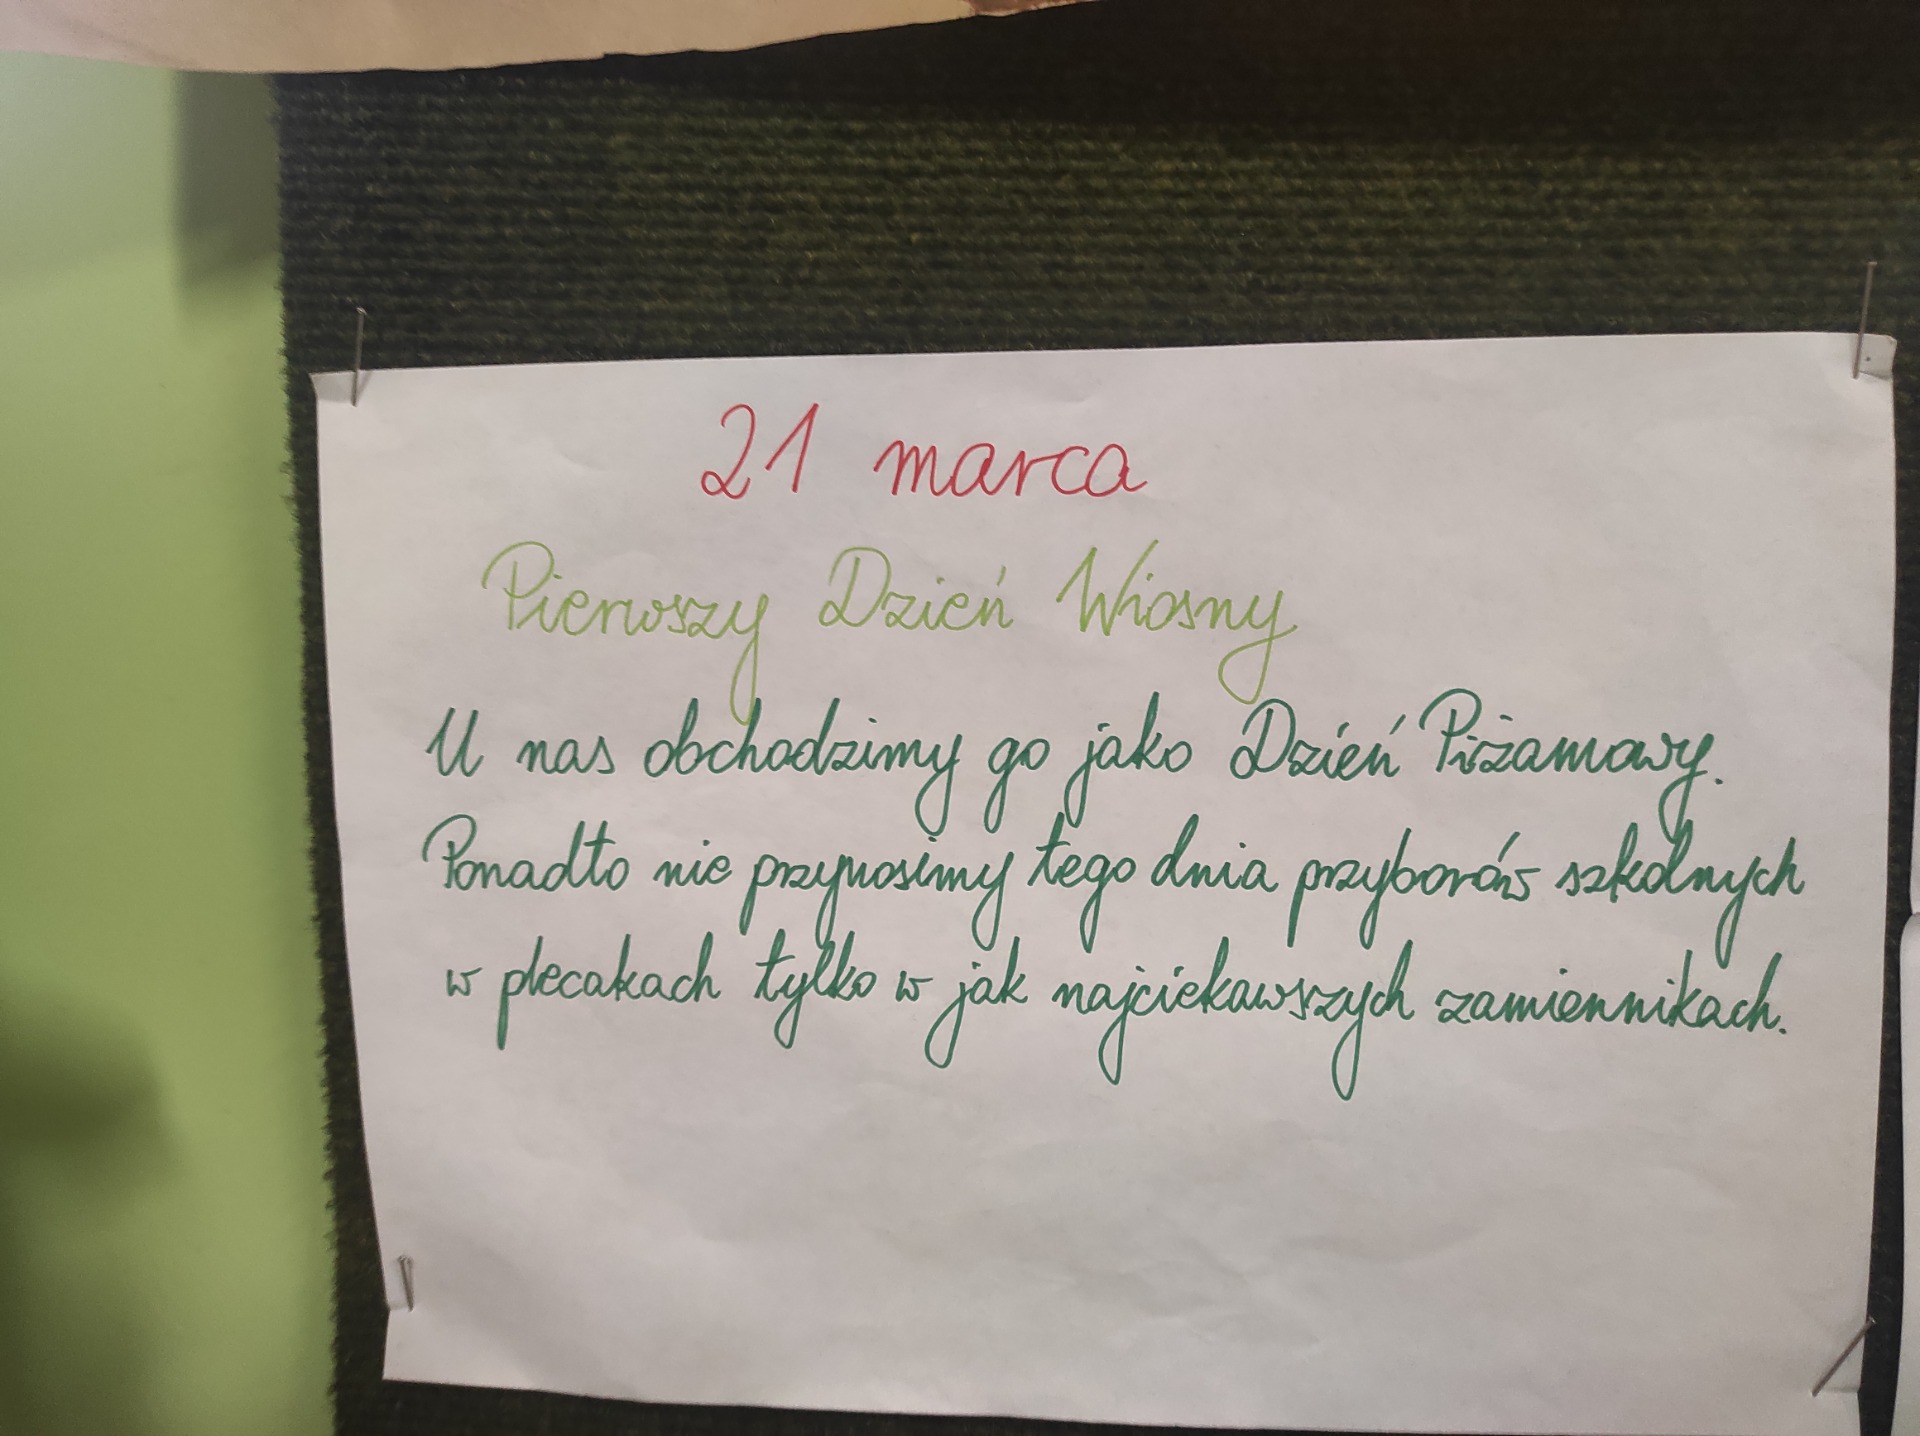 21 marca
Pierwszy Dzień Wiosny
U nas obchodzimy go jako Dzień Piżamowy.
Ponadto nie przynosimy tego dnia przyborów szkolnych
w plecakach tylko w jak najciekawszych zamiennikach.